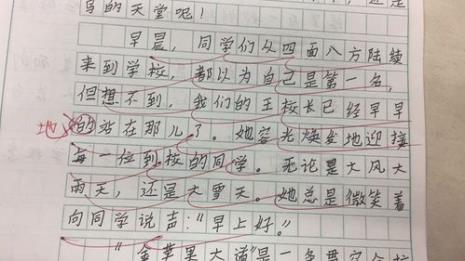 鸟的天堂呢！
早晨，同学们从四面八方陆续
来到学校，都以为自己是第一名，
但想不到，我们的王校长已经早早
地的站在那儿了。她容光焕发地迎接
每一位到校的同学。无论是大风大
雨天，还是大雪天。她总是微笑着
向同学说声："早上好。"
"金苹果大道"是一条贯穿全校